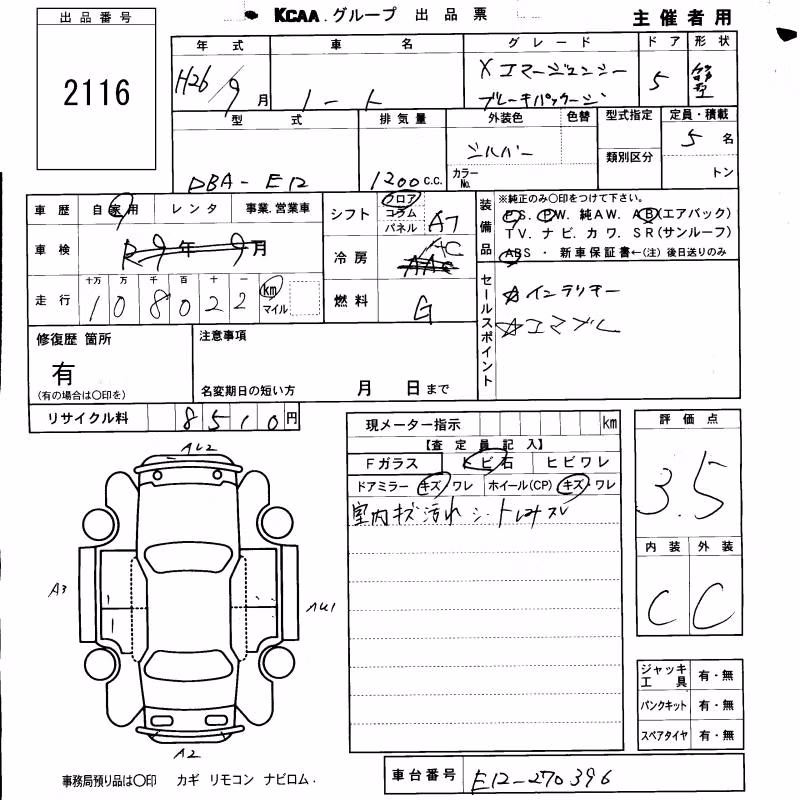 KCAA.グループ 出品票
主催者用
出品番号
2116
年式 車名 グレード ドア 形状
H26/9月 ノート Xエマージェンシー 5
ブレーキパッケージ
型式 排気量 外装色 色替 型式指定 定員・積載
シルバー 5名
DBA-E12 1200c.c. カラーNo. 類別区分 トン
車歴 自家用 レンタ 事業.営業車
シフト フロア コラム パネル AT
装備品 ※純正のみ〇印をつけて下さい。
P.S. P.W. 純AW. AB(エアバック)
TV. ナビ. カワ. SR(サンルーフ)
ABS ・ 新車保証書←(注) 後日送りのみ
車検 R9年9月
冷房 AC AAC
走行 十万 万 千 百 十 一 km マイル
108022
燃料 G
セールスポイント
☆インテリキー
☆エマブレ
修復歴 箇所
有
(有の場合は〇印を)
注意事項
名変期日の短い方 月 日まで
リサイクル料 8510円
現メーター指示 km
【査定員記入】
Fガラス トビ石 ヒビワレ
ドアミラー キズ・ワレ ホイール(CP) キズ・ワレ
室内キズ汚れ シートしみスレ
評価点
3.5
内装 外装
C C
AU2
A3
AU1
A2
ジャッキ工具 有・無
パンクキット 有・無
スペアタイヤ 有・無
事務局預り品は〇印 カギ リモコン ナビロム.
車台番号 E12-270396